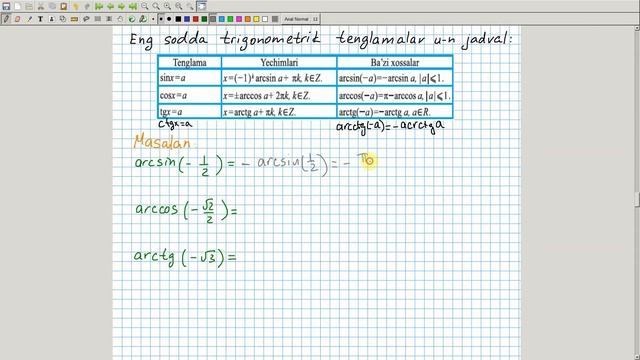 Eng sodda trigonometrik tenglamalar u-n jadval:
Tenglama Yechimlari Ba'zi xossalar
sinx=a x=(−1)ᵏ arcsin a+ πk, k∈Z. arcsin(−a)=−arcsin a, |a|⩽1.
cosx=a x=±arccos a+ 2πk, k∈Z. arccos(−a)=π−arccos a, |a|⩽1.
tgx=a x=arctg a+ πk, k∈Z. arctg(−a)=−arctg a, a∈R.
ctgx=a arcctg(-a)=-acrctg a
Masalan
arcsin(-1/2)= - arcsin(1/2)= - π
arccos(-√2/2)=
arctg(-√3)=